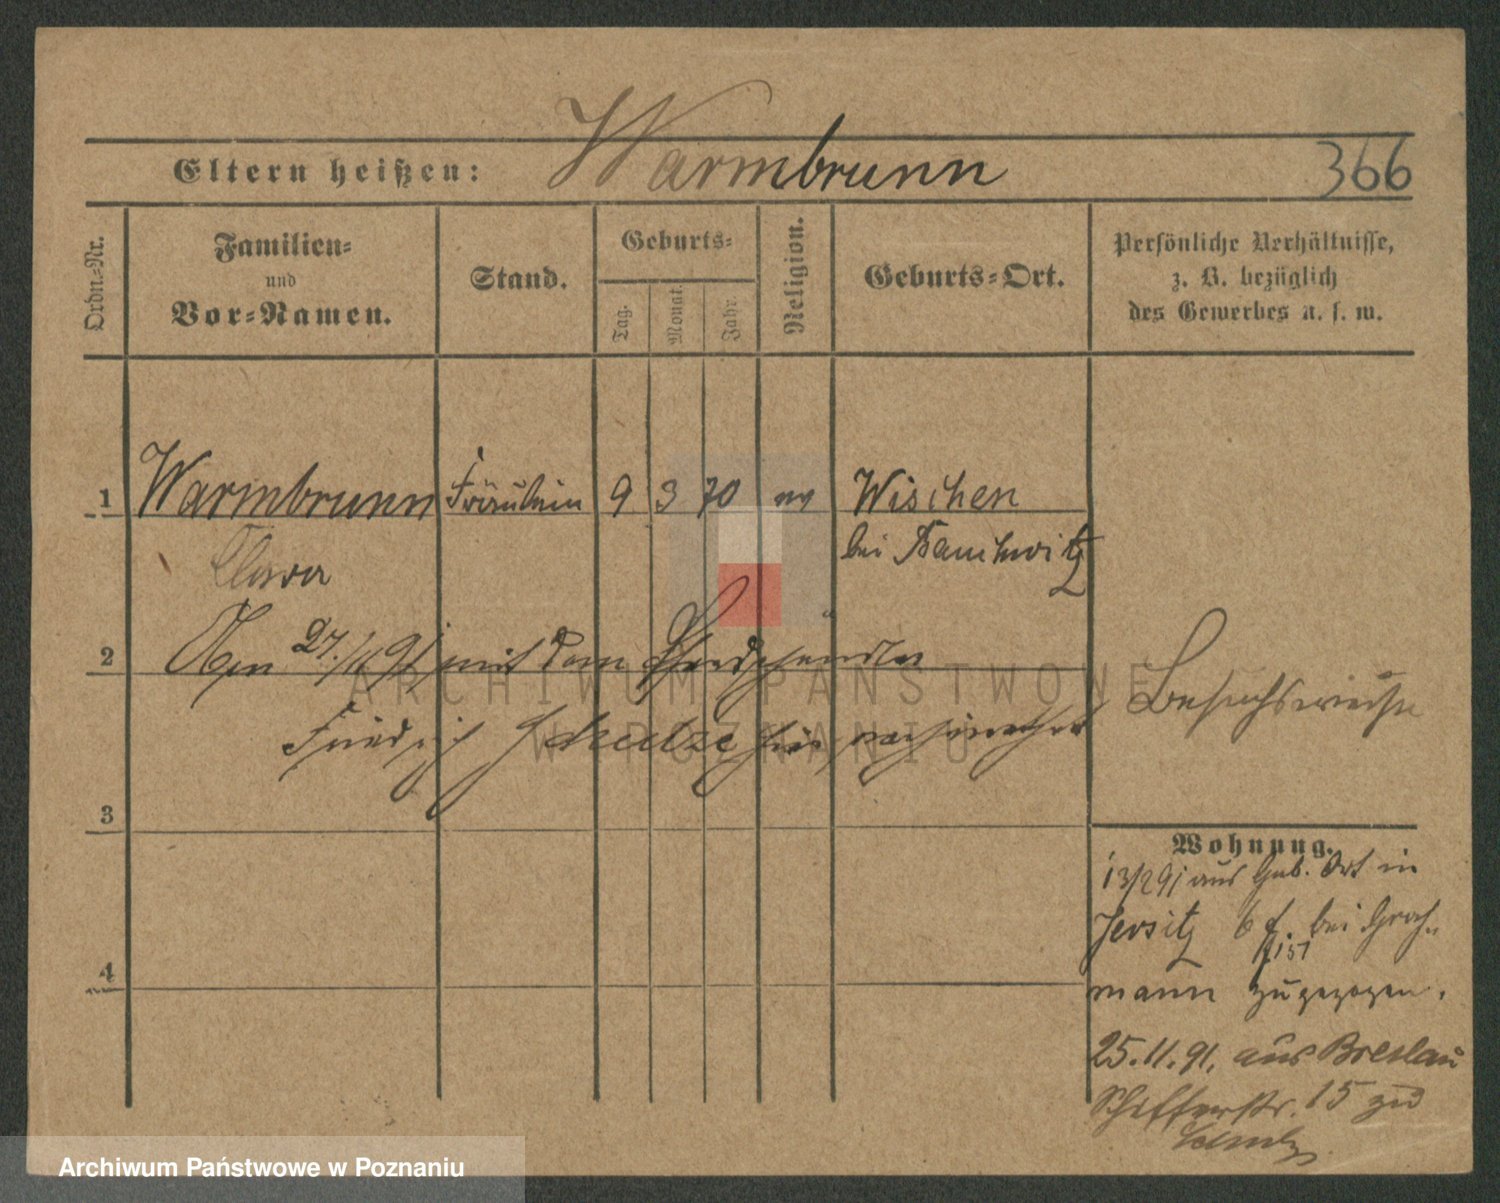 Eltern heißen: Warmbrunn 366
Ordn.-Nr.
Familien-
und
Vor-Namen.
Stand.
Geburts-
Tag.
Monat.
Jahr.
Religion.
Geburts-Ort.
Persönliche Verhältnisse,
z. B. bezüglich
des Gewerbes u. s. w.
1 Warmbrunn Fräulein 9 3 70 ev Wischen
Clara
bei
2 Am 27./11 91 mit dem Pferdehändler
Friedrich Schulze hier verheirathet
Besuchsweise
3
Wohnung.
13/2 91 aus Geb. Ort in
Jersitz 6 f. bei
157
mann zugezogen.
4
25.11.91. aus Breslau
15 zu
ARCHIWUM PAŃSTWOWE
W POZNANIU
Archiwum Państwowe w Poznaniu